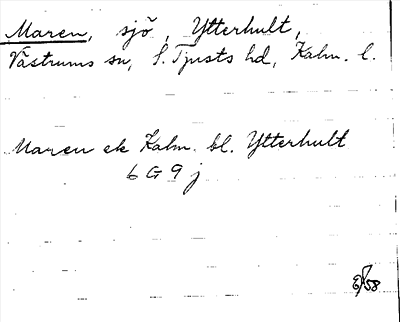 Maren, sjö, Ytterhult,
Västrums sn, S. Tjusts hd, Kalm. l.
Maren ek Kalm. bl. Ytterhult
6 G 9 j
/58